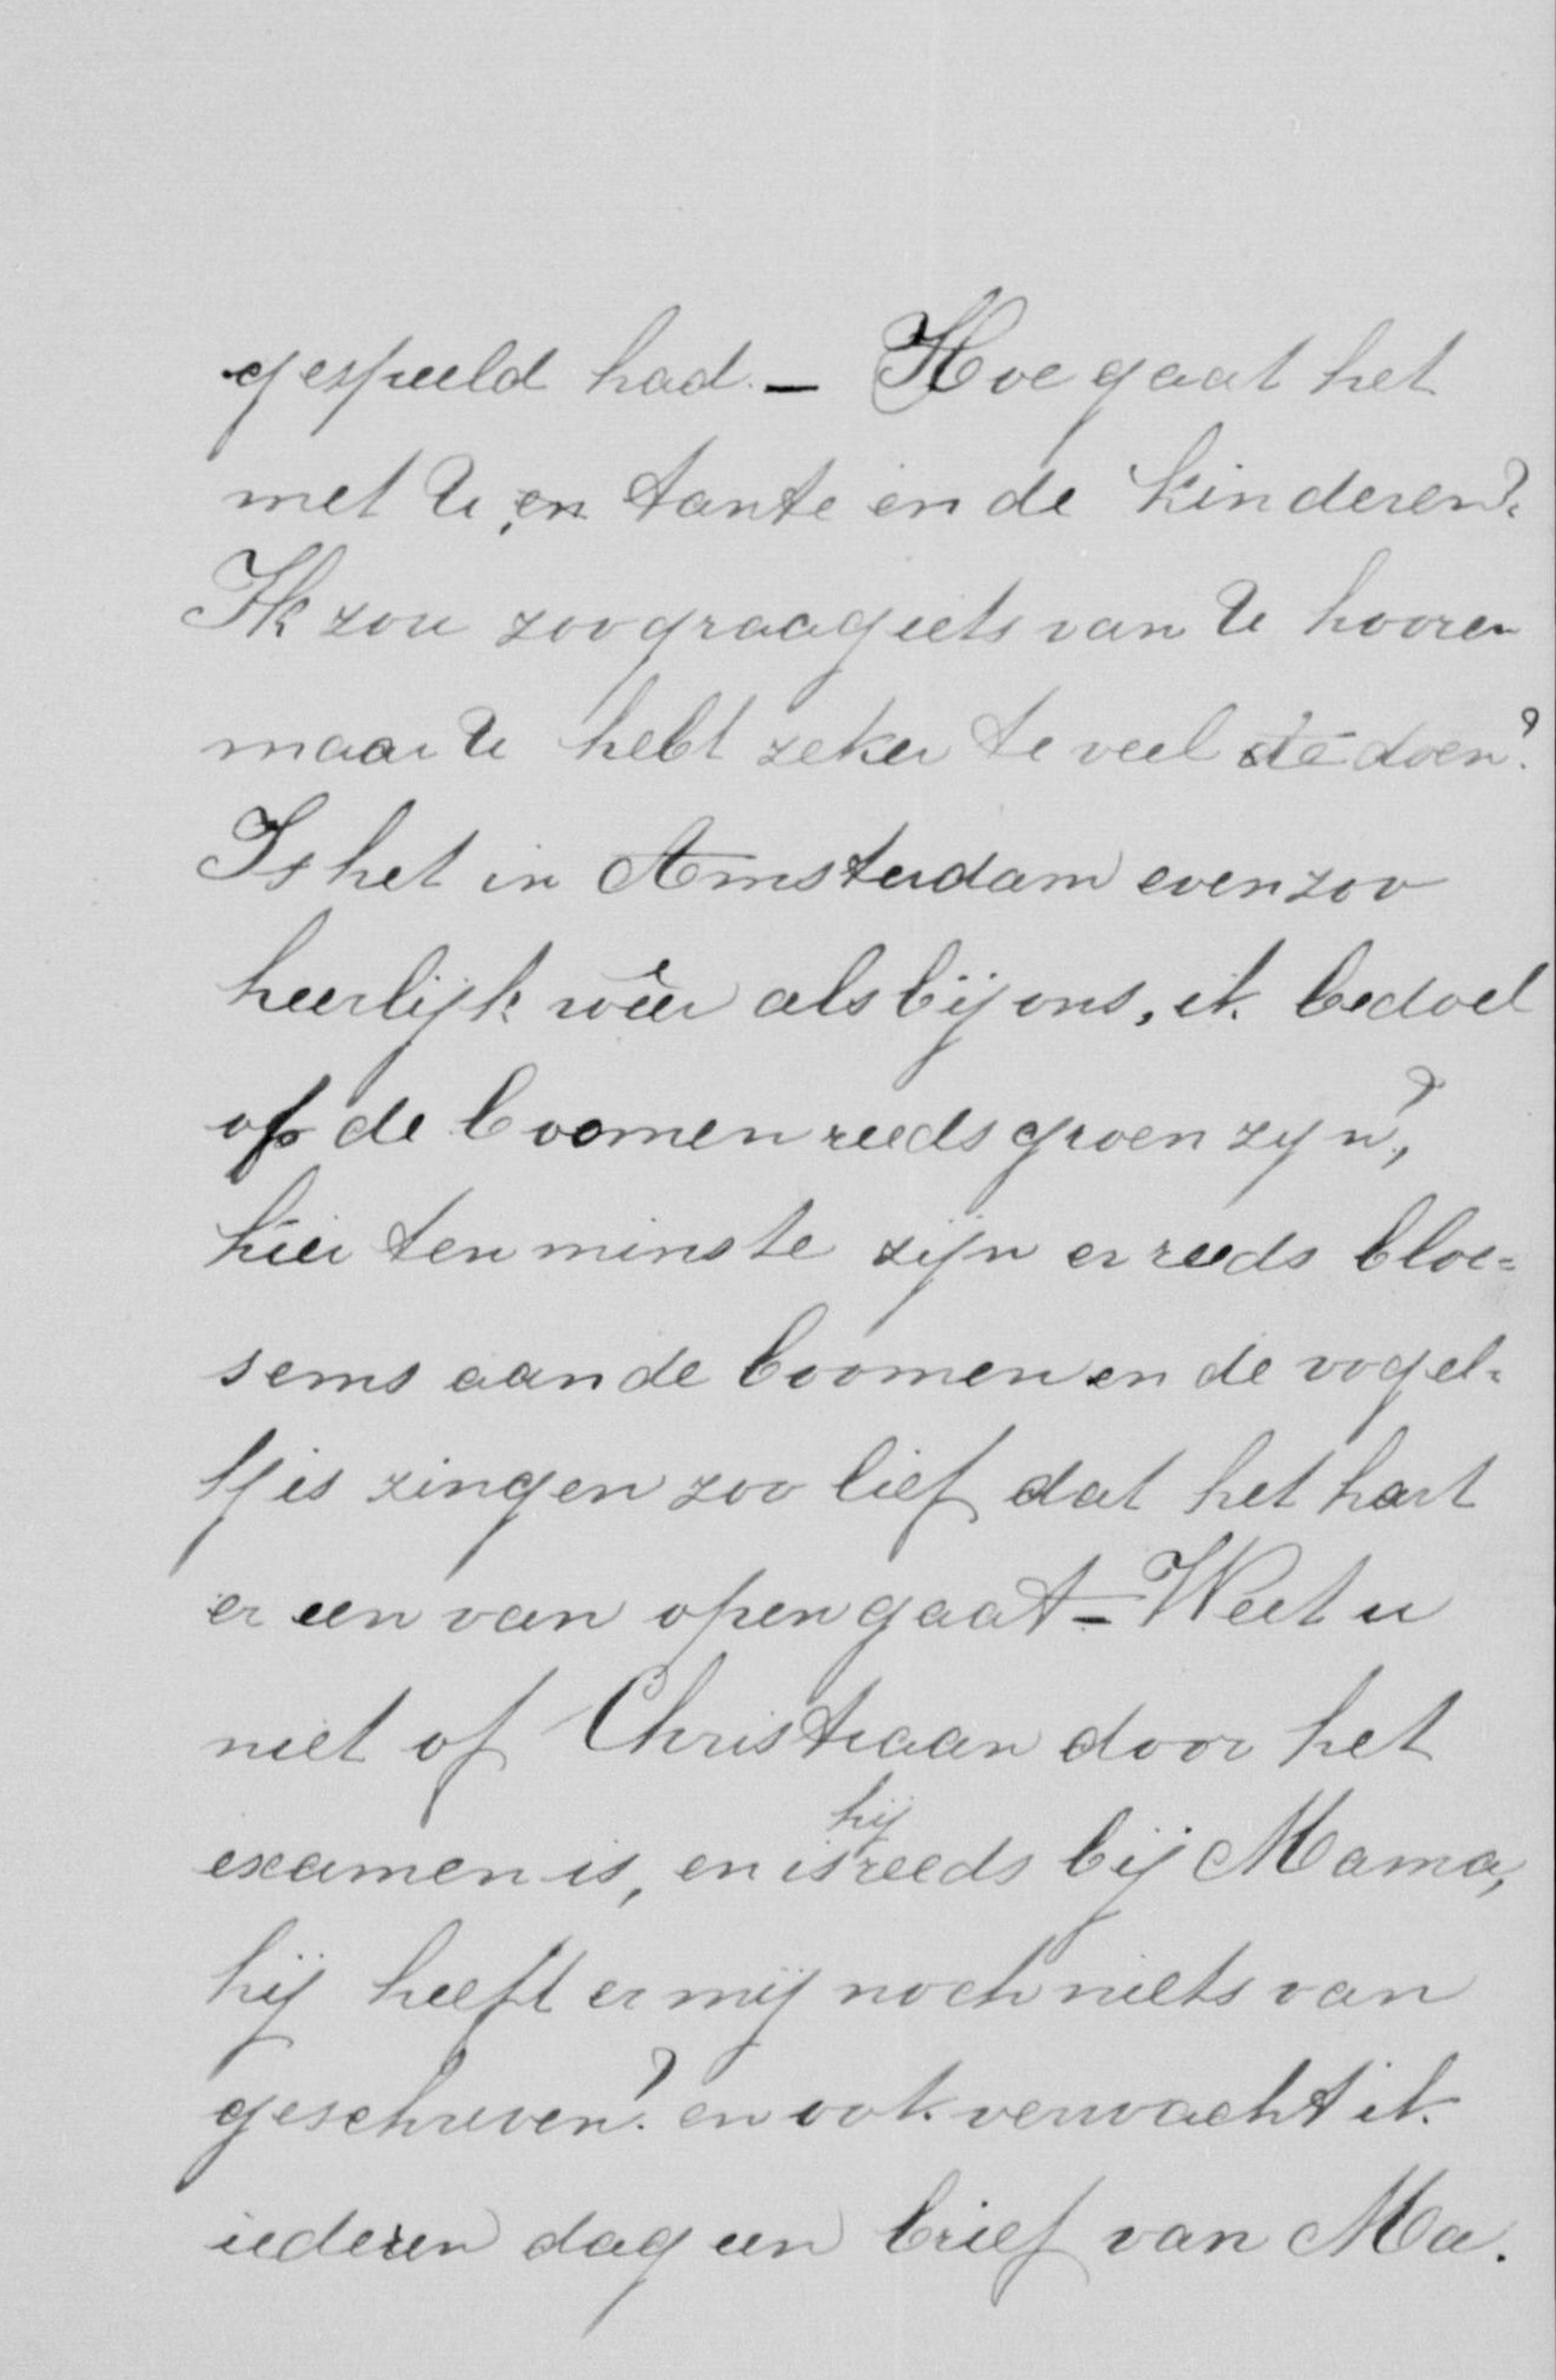 gespeeld had. — Hoe gaat het
met U, en tante en de kinderen?
Ik zou zoo graag iets van U hooren
maar U hebt zeker te veel te doen?
Is het in Amsterdam even zoo
heerlijk wêer als bij ons, ik bedoel
of de boomen reeds groen zyn?,
hier ten minste zijn er reeds bloe=
sems aan de boomen en de vogel=
tjes zingen zoo lief dat het hart
er een van open gaat — Weet u
niet of Christiaan door het
examen is, en is hij reeds bij Mama,
hij heeft er mij noch niets van
geschreven? en ook verwacht ik
iederen dag een brief van Ma.